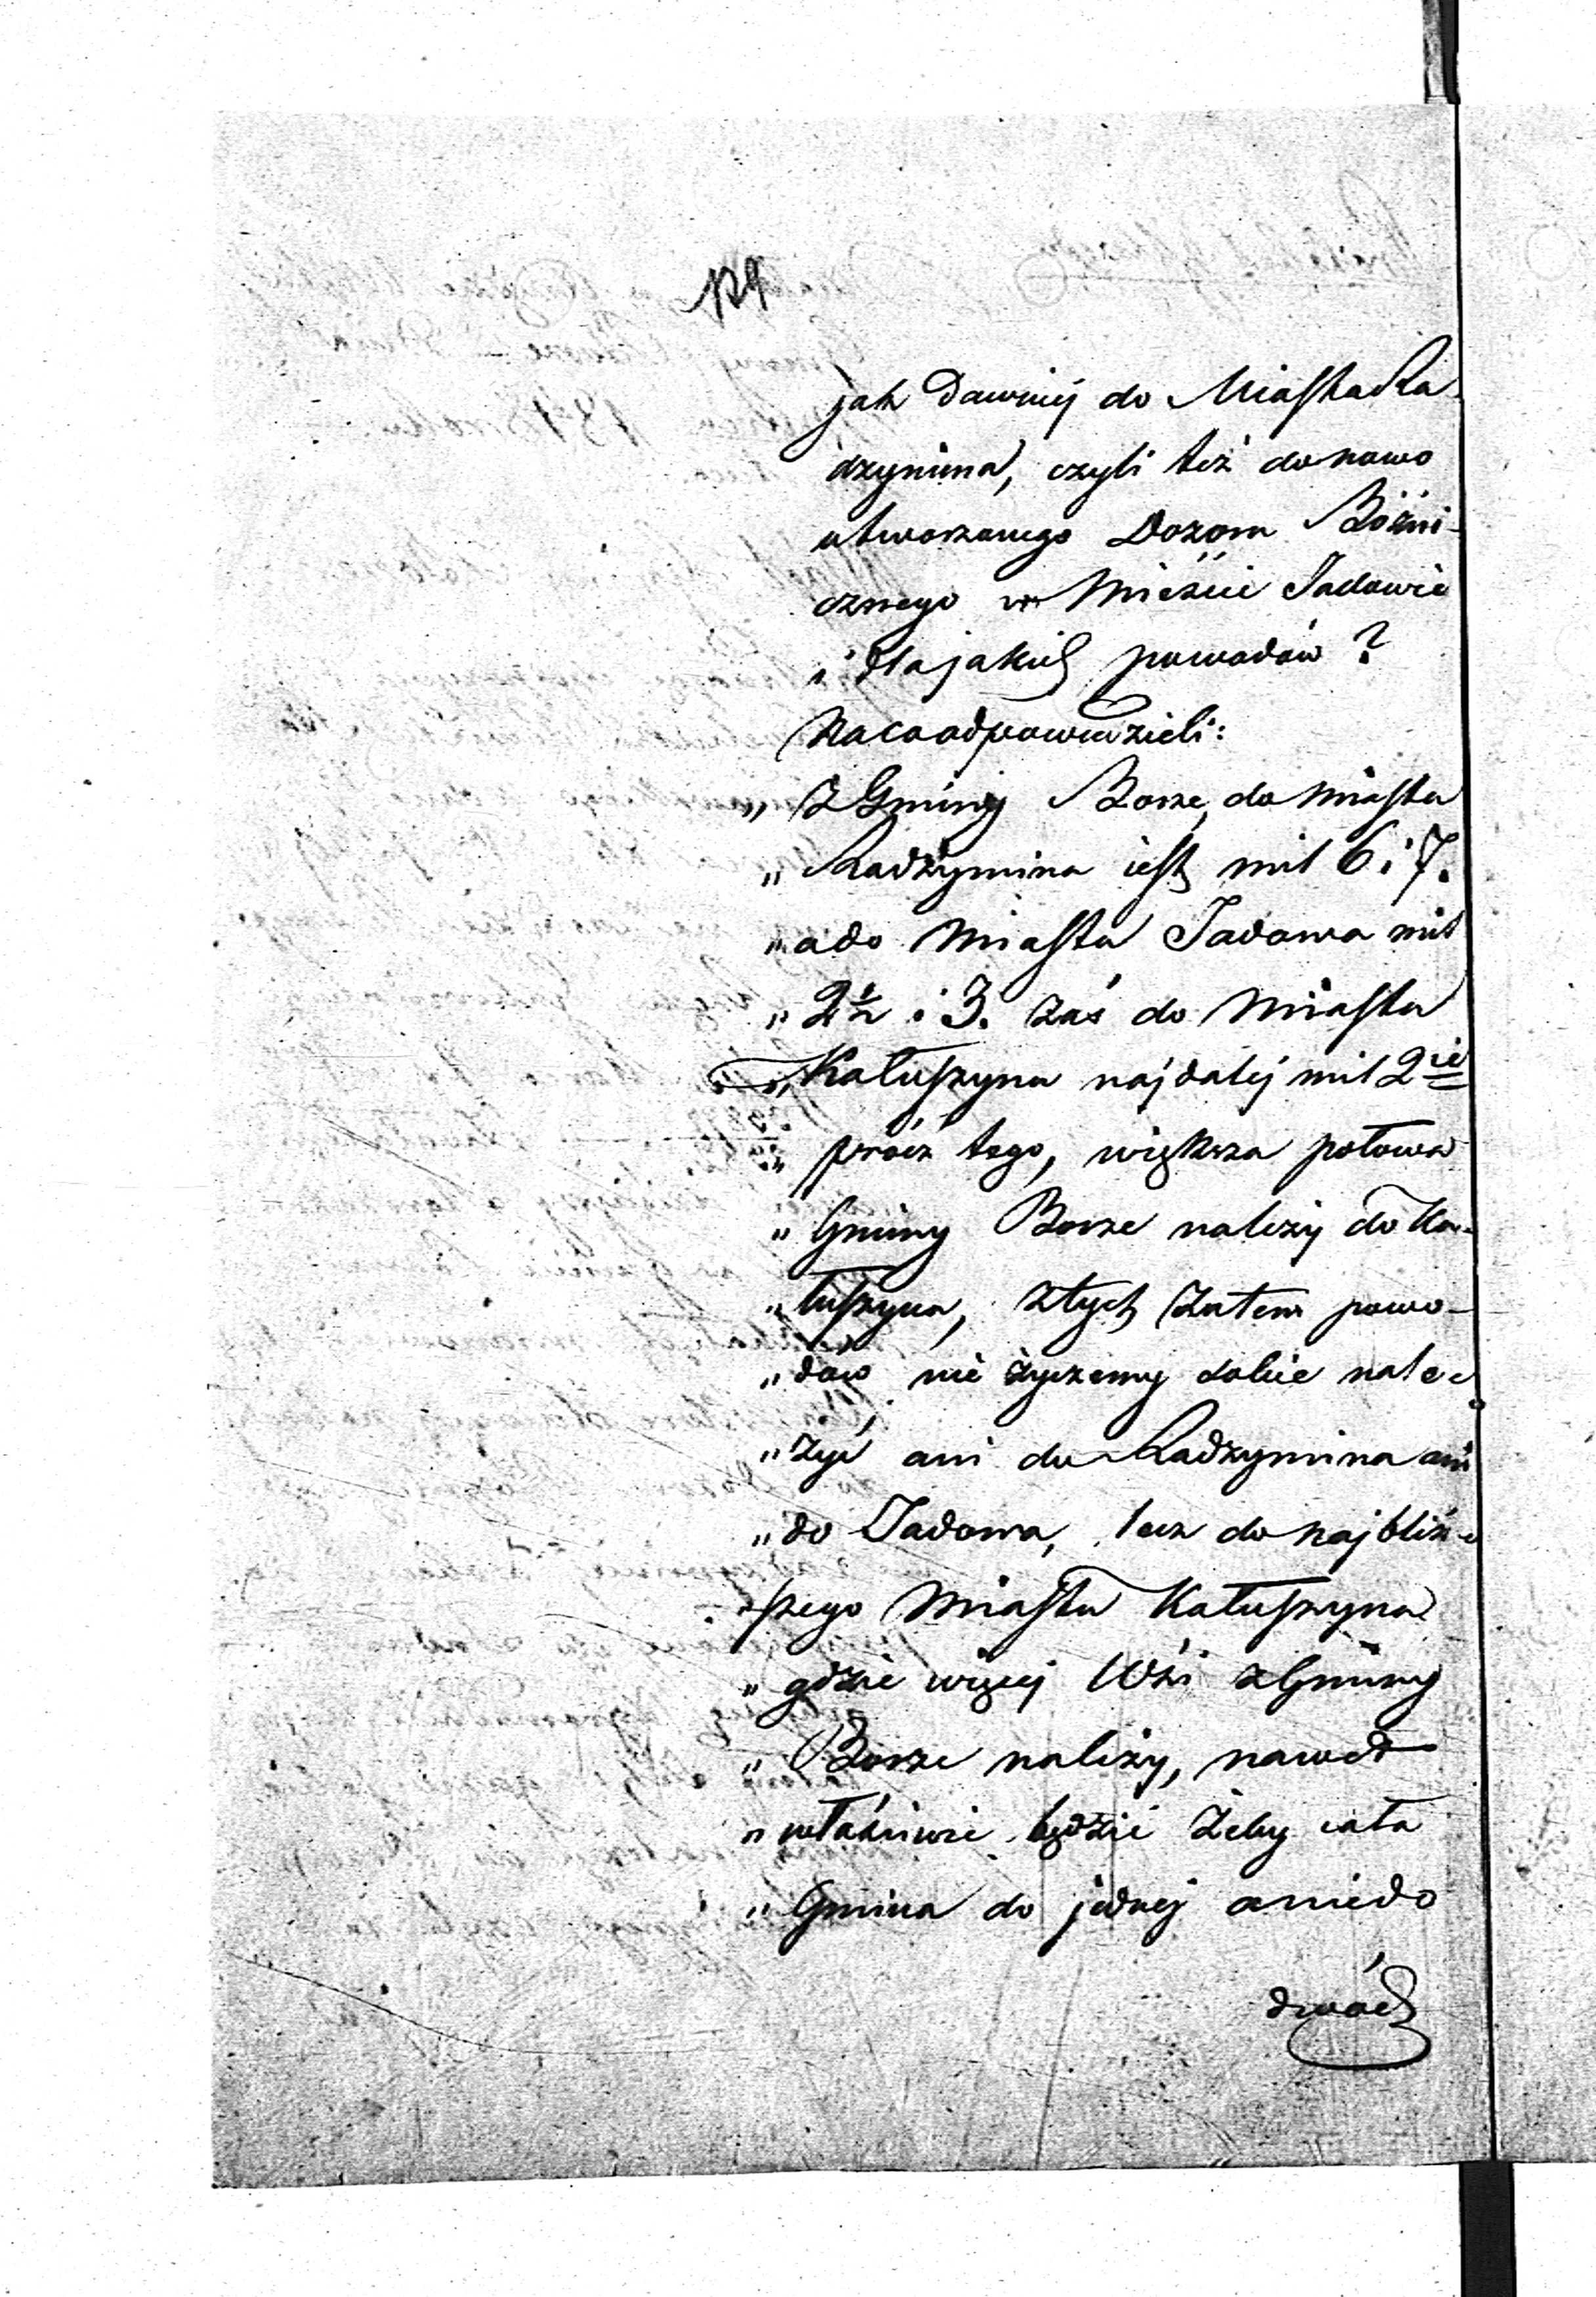 129
jak dawniej do Miasta Ra-
dzymina, czyli też do nowo
utworzonego Dozoru Bóżni-
cznego w Mieście Jadowie
i dla jakich powodów?
Na co odpowiedzieli:
„ z Gminy Borze, do miasta
„ Radzymina iest mil 6 i 7.
„ a do Miasta Jadowa mil
„ 2½ i 3. zaś do Miasta
„ Kałuszyna najdalej mil 2ie
„ prócz tego, większa połowa
„ Gminy Borze należy do Ka-
„ łuszyna, z tych zatem powo-
„ dów, nie życzemy sobie nale-
„ żyć ani do Radzymina ani
„ do Jadowa, lecz do najbliż-
„ szego Miasta Kałuszyna
„ gdzie więcej Wsi z Gminy
„ Borze należy, nawet
„ właściwie będzie żeby cała
„ Gmina do jednej a nie do
dwóch